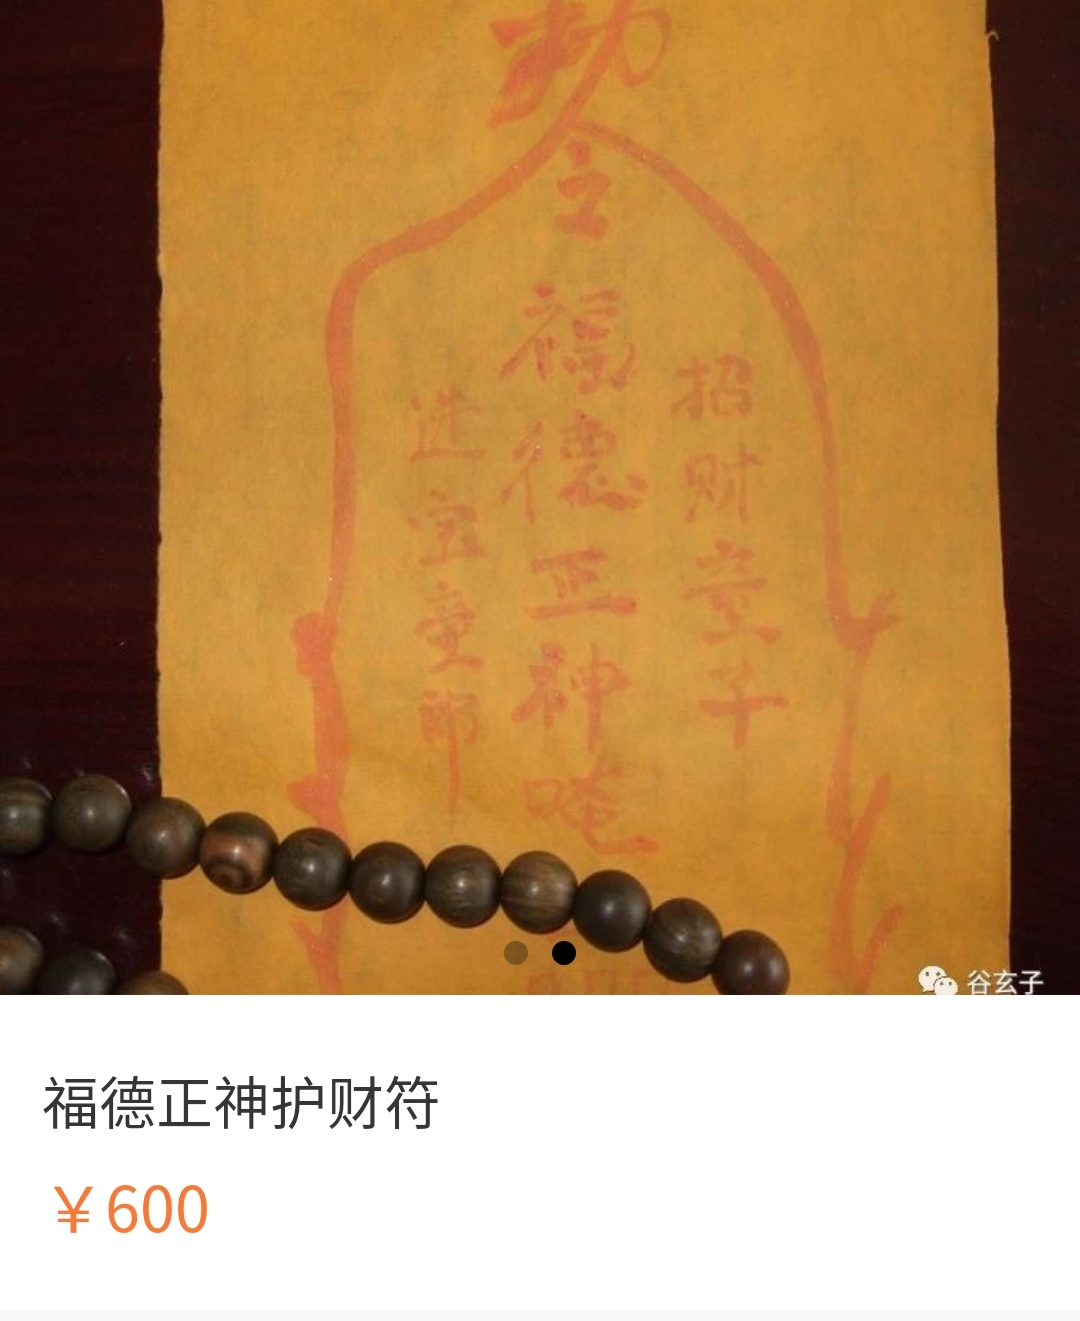 勅令
福德正神唵
招财童子
进宝童郎
谷玄子
福德正神护财符
￥600